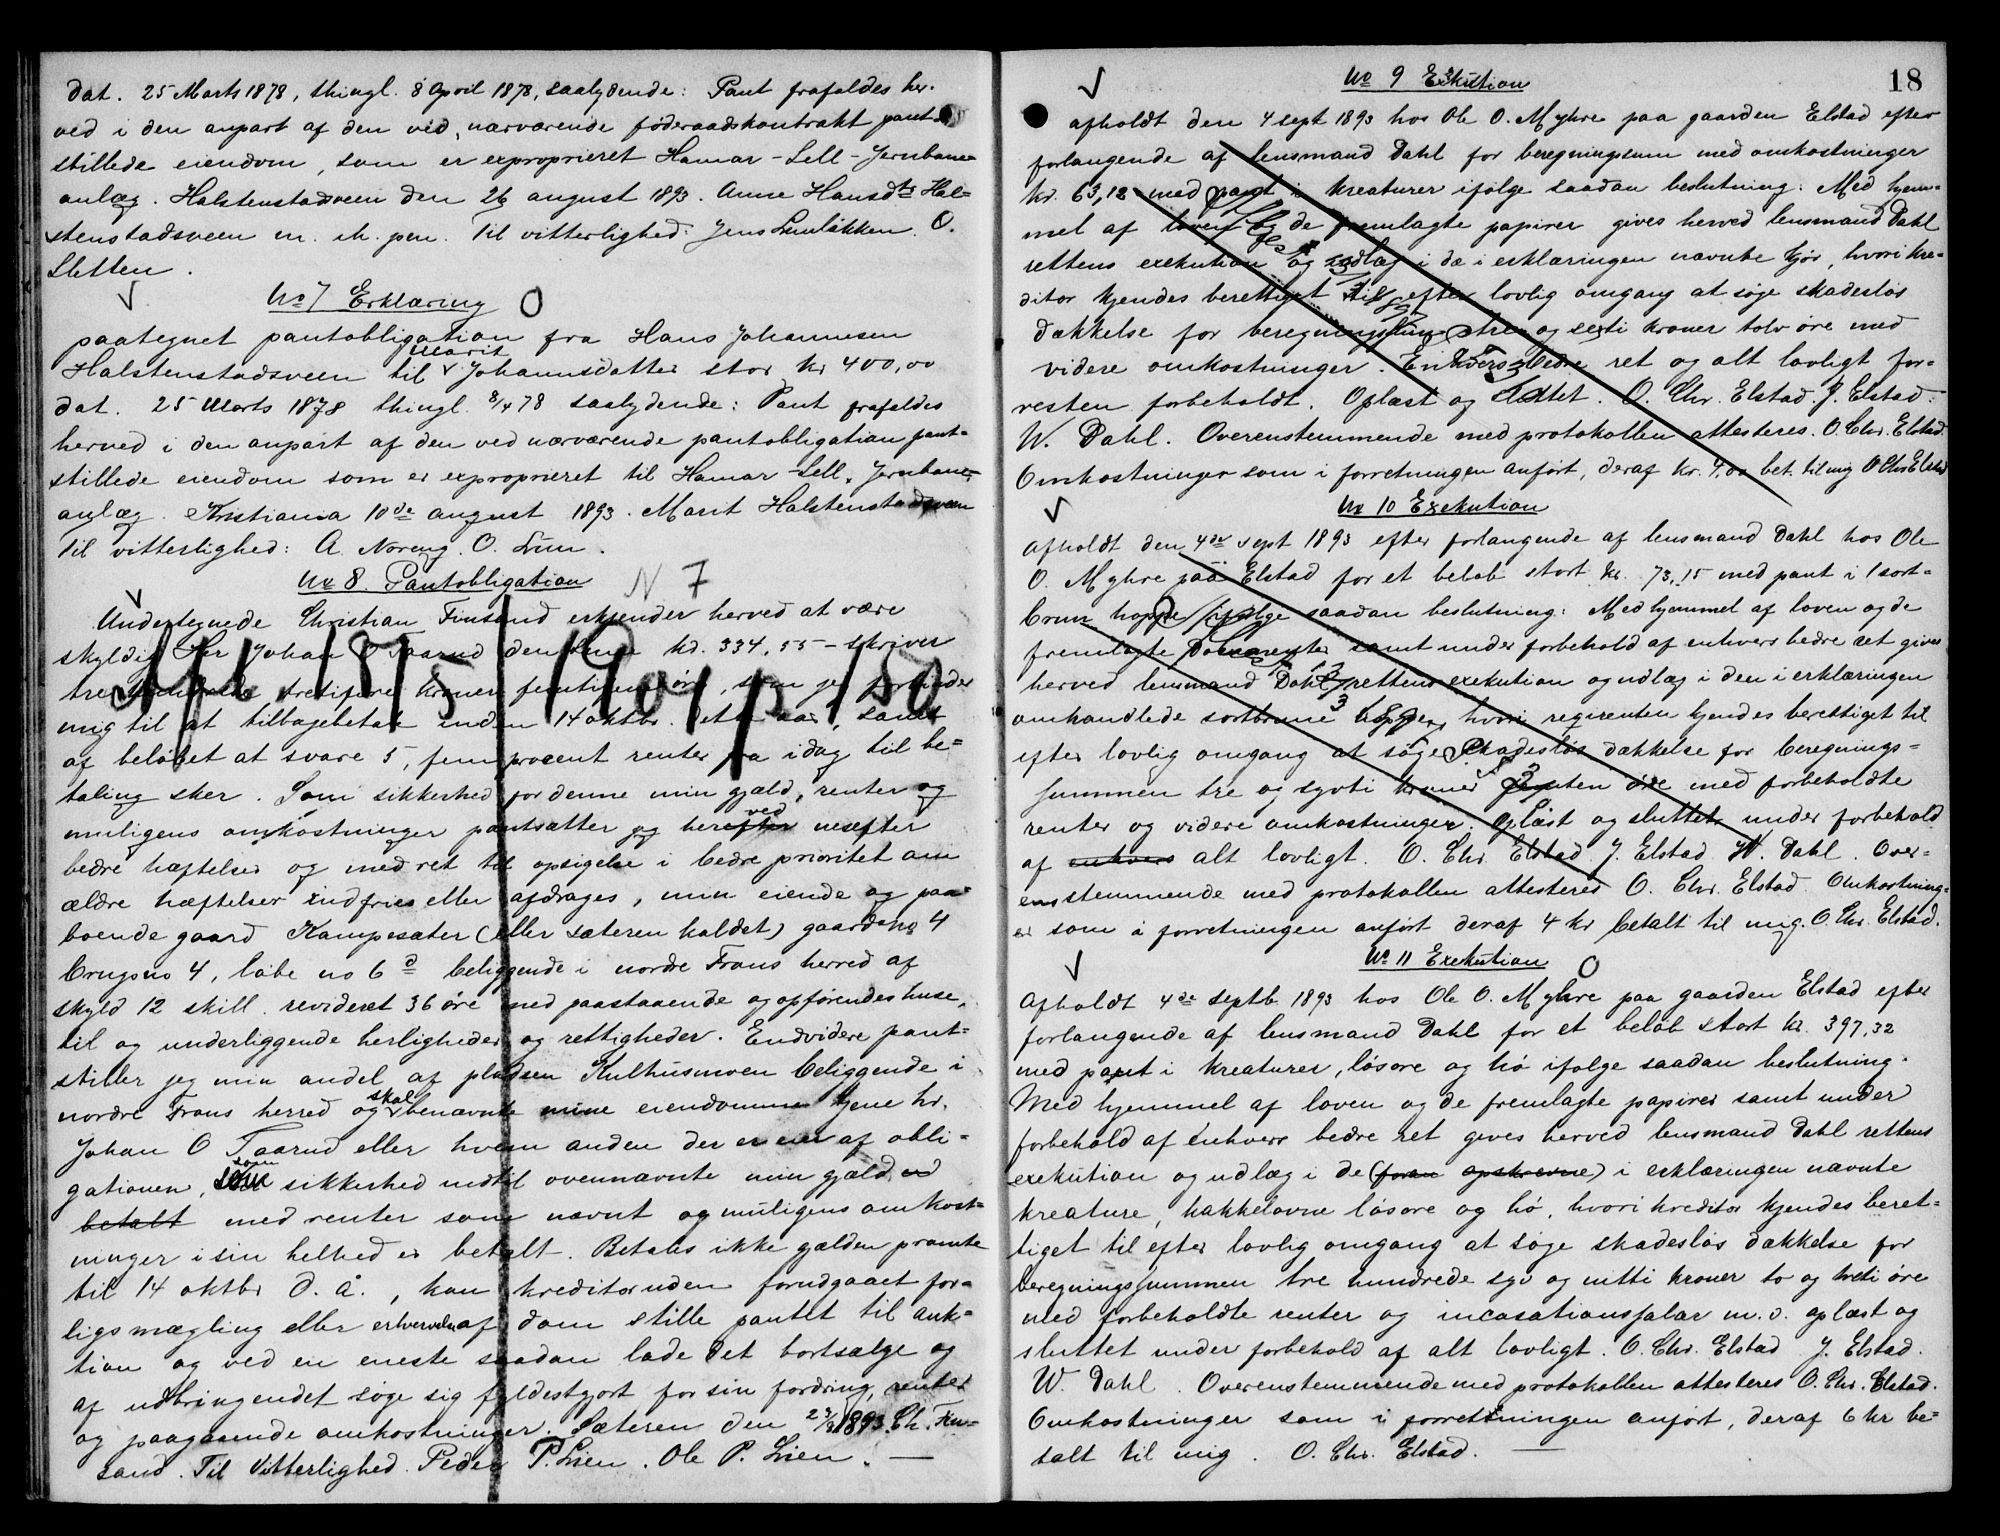 dat. 25 Marts 1878, thingl. 8 April 1878, saalydende: Pant frafaldes her-
ved i den anpart af den ved nærværende føderaadskontrakt pant-
stillede eiendom, som er exproprieret Hamar-Sell-Jernbane-
anlæg. Halstenstadsveen den 26 august 1893. Anne Hansdtr Hal-
stenstadsveen m. ih. pen. Til vitterlighed: Jens Lunløkken. O.
Sletten.
No 7 Erklæring
paategnet pantobligation fra Hans Johannesen
Halstenstadsveen til Marit Johannsdatter stor kr 400,00
dat. 25 Marts 1878 thingl. 8/4 78 saalydende: Pant frafaldes
herved i den anpart af den ved nærværende pantobligation pant-
stillede eiendom som er exproprieret til Hamar-Sell. Jernbane-
anlæg. Kristiania 10de august 1893. Marit Halstenstadsveen
Til vitterlighed: A. Noreng. O. Lien.
No 8. Pantobligation N 7
Undertegnede Christian Finsand erkjender herved at være
skyldig Hr Johan O Taarud den sum kr. 334,55 – skriver
tre hundrede tretifire kroner femtifem øre, som jeg forbinder
mig til at tilbagebetale inden 14 oktbr. dette aar, samt
af beløbet at svare 5, fem procent renter fra idag til be-
taling sker. Som sikkerhed for denne min gjæld, renter og
muligens omkostninger pantsætter jeg herefter ved næsefter
bedre hæftelser og med ret til opsigelse i bedre prioritet om
ældre hæftelser indfries eller afdrages, min eiende og paa-
boende gaard Kampesæter (eller sæteren kaldet) gaardsno 4
brugsno 4, løbe no 6 d beliggende i nordre Frons herred af
skyld 12 skill. revideret 36 øre med paastaaende og opførendes huse,
til og underliggende herligheder og rettigheder. Endvidere pant-
stiller jeg min andel af pladsen Kulhusmoen beliggende i
nordre Frons herred og skal benævnte mine eiendomme tjene hr.
Johan O Taarud eller hvem anden der er eier af obli-
gationen, som som sikkerhed indtil ovennævnte min gjæld er
betalt med renter som nævnt og muligens omkost-
ninger i sin helhed er betalt. Betales ikke gjælden promte
til 14 oktbr d. å., kan kreditor uden forudgaaet for-
ligsmægling eller erhvervelse af dom stille pantet til auk-
tion og ved en eneste saadan lade det bortsælge og
af udbringendet søge sig fyldestgjort for sin fordring, renter
og paagaaende omkostninger. Sæteren den 23/8 1893. Ch. Fin-
sand. Til Vitterlighed. Peder P. Lien. Ole P. Lien. —
18
No 9 Exekution
afholdt den 4 sept 1893 hos Ole O. Myhre paa gaarden Elstad efter
forlangende af lensmand Dahl for beregningsum med omkostninger
kr. 63,12 med pant i kreaturer ifølge saadan beslutning: Med hjem-
mel af loven og de fremlagte papirer gives herved lensmand Dahl
rettens exekution og udlæg i de i erklæringen nævnte kjør, hvori kre-
ditor kjendes berettiget til efter lovlig omgang at søge skadesløs
dækkelse for beregningssum tre og sexti kroner tolv øre med
videre omkostninger. Enhvers bedre ret og alt lovligt for-
resten forbeholdt. Oplæst og sluttet. O. Chr. Elstad. J. Elstad.
W. Dahl. Overenstemmende med protokollen attesteres. O. Chr. Elstad.
Omkostninger som i forretningen anført, deraf kr. 4,00 bet. til mig O Chr Elstad
No 10 Exekution
Afholdt den 4de sept 1893 efter forlangende af lensmand Dahl hos Ole
O. Myhre paa Elstad for et beløb stort kr. 73,15 med pant i 1 sort-
brun hoppe ifølge saadan beslutning: Med hjemmel af loven og de
fremlagte Dokumenter samt under forbehold af enhvers bedre ret gives
herved lensmand Dahl rettens exekution og udlæg i den i erklæringen
omhandlede sortbrune hoppe, hvori reqirenten kjendes berettiget til
efter lovlig omgang at søge skadesløs dækkelse for beregnings-
summen tre og sytti kroner femten øre med forbeholdte
renter og videre omkostninger. Oplæst og sluttet under forbehold
af enhvers alt lovligt. O. Chr. Elstad J. Elstad W. Dahl. Over-
ensstemmende med protokollen attesteres O. Chr. Elstad. Omkostning-
er som i forretningen anført deraf 4 kr betalt til mig. O. Chr. Elstad.
No 11 Exekution
Afholdt 4de septb. 1893 hos Ole O. Myhre paa gaarden Elstad efter
forlangende af lensmand Dahl for et beløb stort kr. 397,32
med pant i kreaturer, løsøre og hø ifølge saadan beslutning.
Med hjemmel af loven og de fremlagte papirer samt under
forbehold af enhvers bedre ret gives herved lensmand Dahl rettens
exekution og udlæg i de (foran opskrevne) i erklæringen nævnte
kreature, kakkelovne løsøre og hø, hvori kreditor kjendes beret-
tiget til efter lovlig omgang at søge skadesløs dækkelse for
beregningssummen tre hundrede syv og nitti kroner to og treti øre
med forbeholdte renter og incasationssalær m. v. oplæst og
sluttet under forbehold af alt lovligt. O. Chr. Elstad J. Elstad.
W. Dahl. Overenstemmende med protokollen attesteres O. Chr. Elstad.
Omkostninger som i forretningen anført, deraf 6 kr be-
talt til mig. O. Chr. Elstad. —